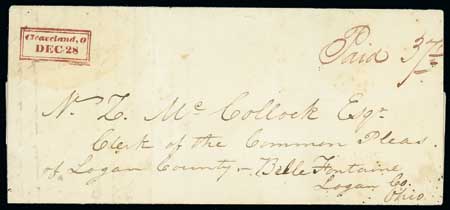 Cleaveland, O
DEC 28
Paid 37½
N. Z. Mc Collock Esqr
Clerk of the Common Pleas.
of Logan County - Belle Fontaine
Logan Co.
Ohio.